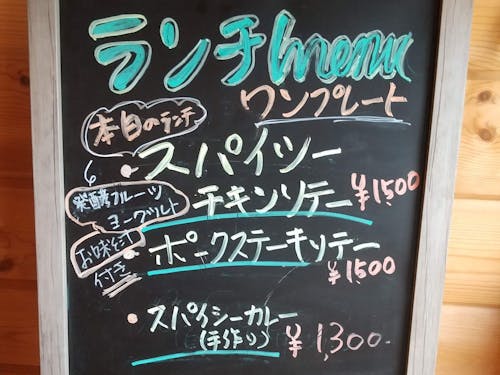 ランチmenu
ワンプレート
本日のランチ
・スパイシー
チキンソテー ¥1,500
発酵フルーツ
ヨーグルト
・ポークステーキソテー
¥1,500
お味噌汁
付き
・スパイシーカレー
(手作り) ¥1,300.